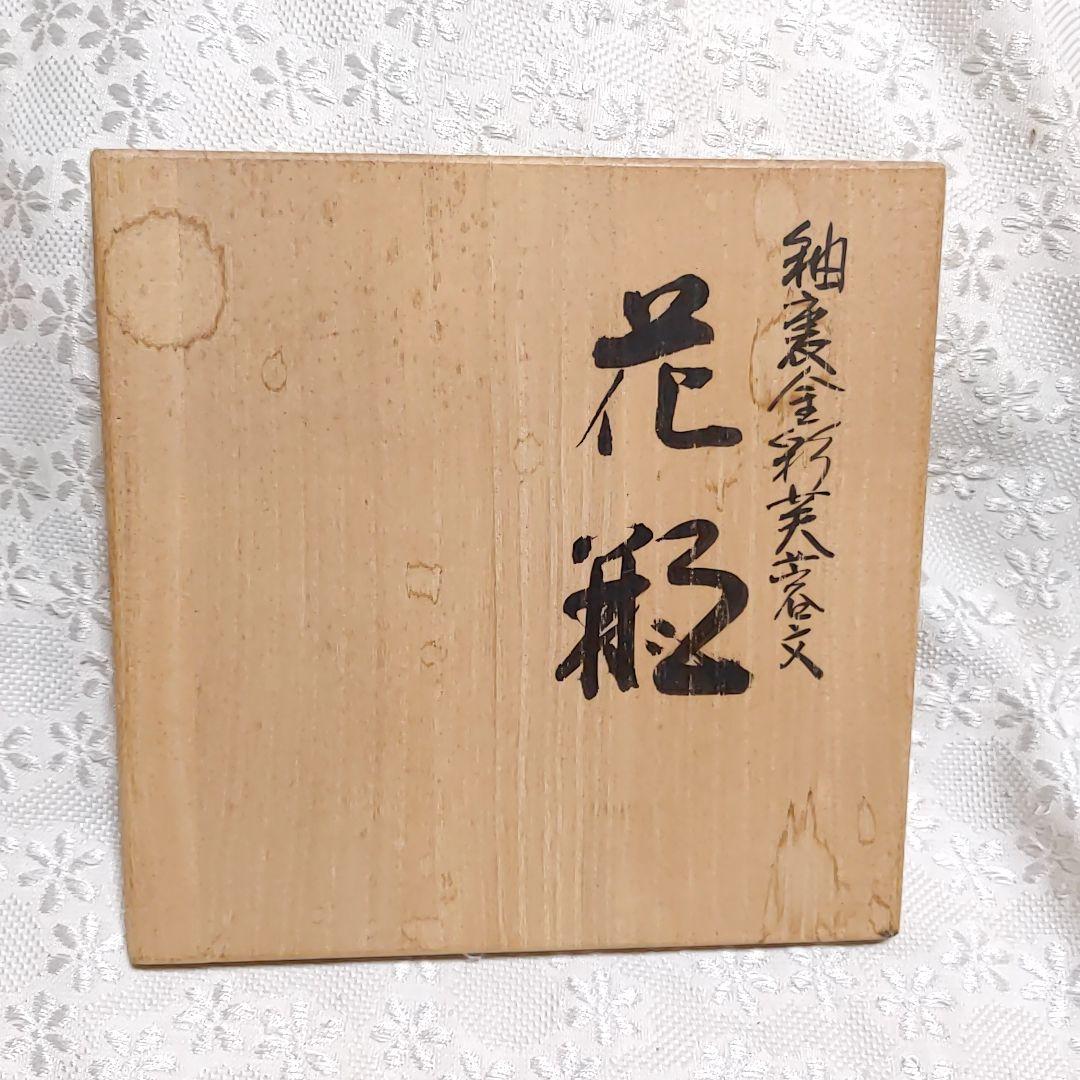 釉裏金彩芙蓉文
花瓶